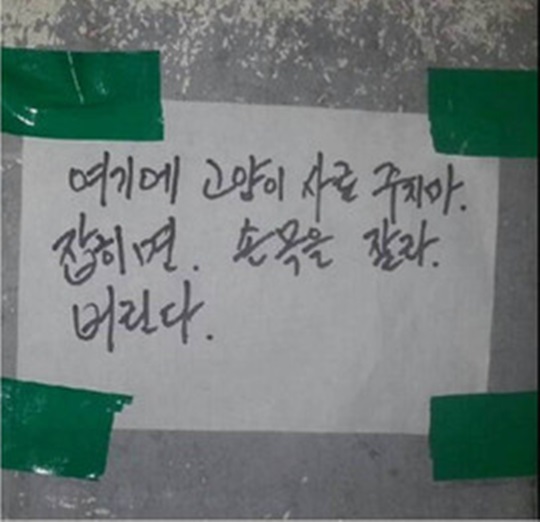 여기에 고양이 사료 주지마.
잡히면. 손목을 잘라.
버린다.